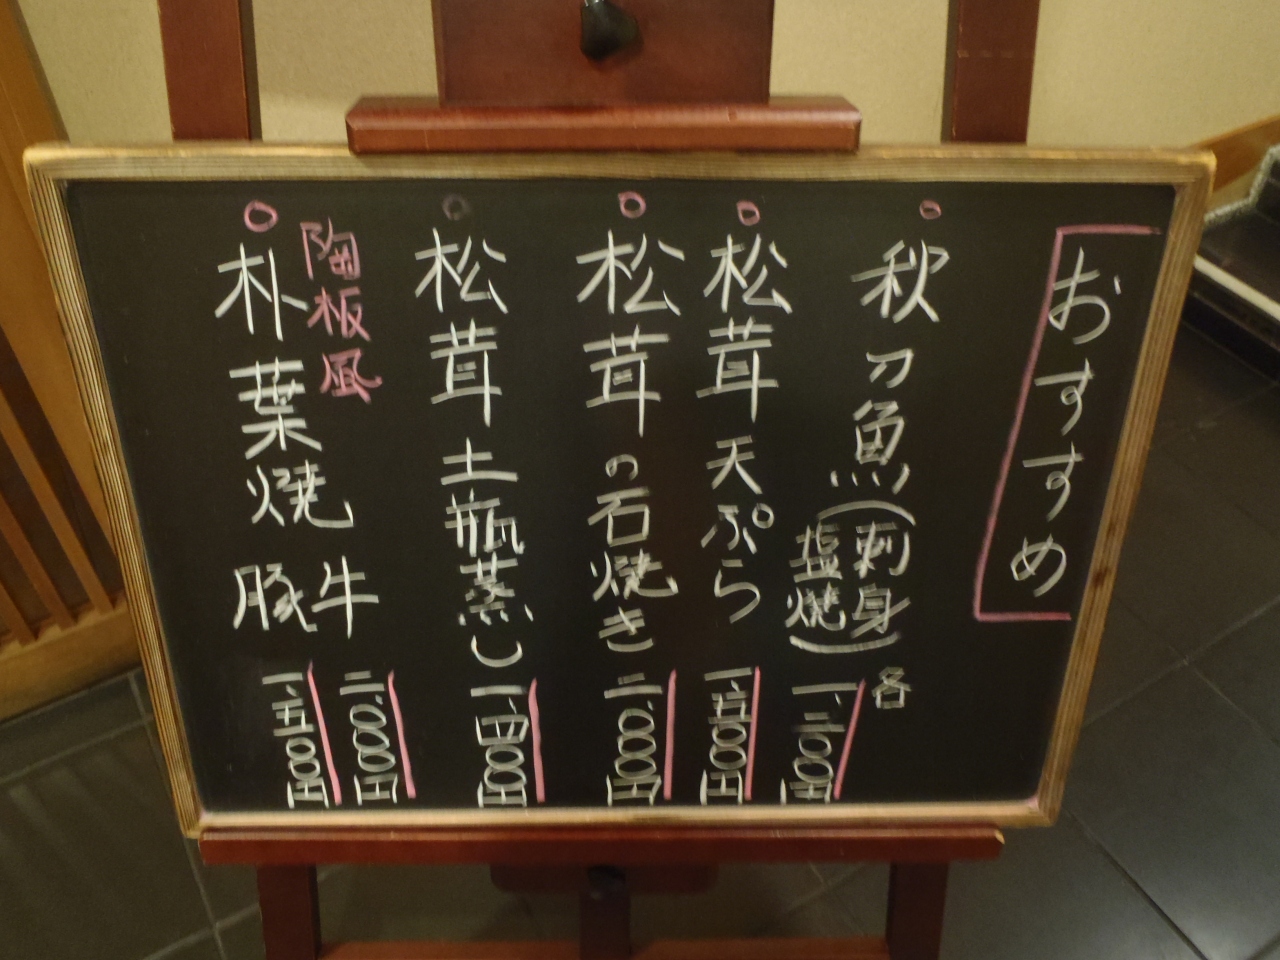 おすすめ
秋刀魚(刺身
塩焼)各
一、二〇〇円
松茸天ぷら
一、五〇〇円
松茸の石焼き
二、〇〇〇円
松茸土瓶蒸し
一、四〇〇円
陶板風
朴葉焼
牛
二、〇〇〇円
豚
一、五〇〇円